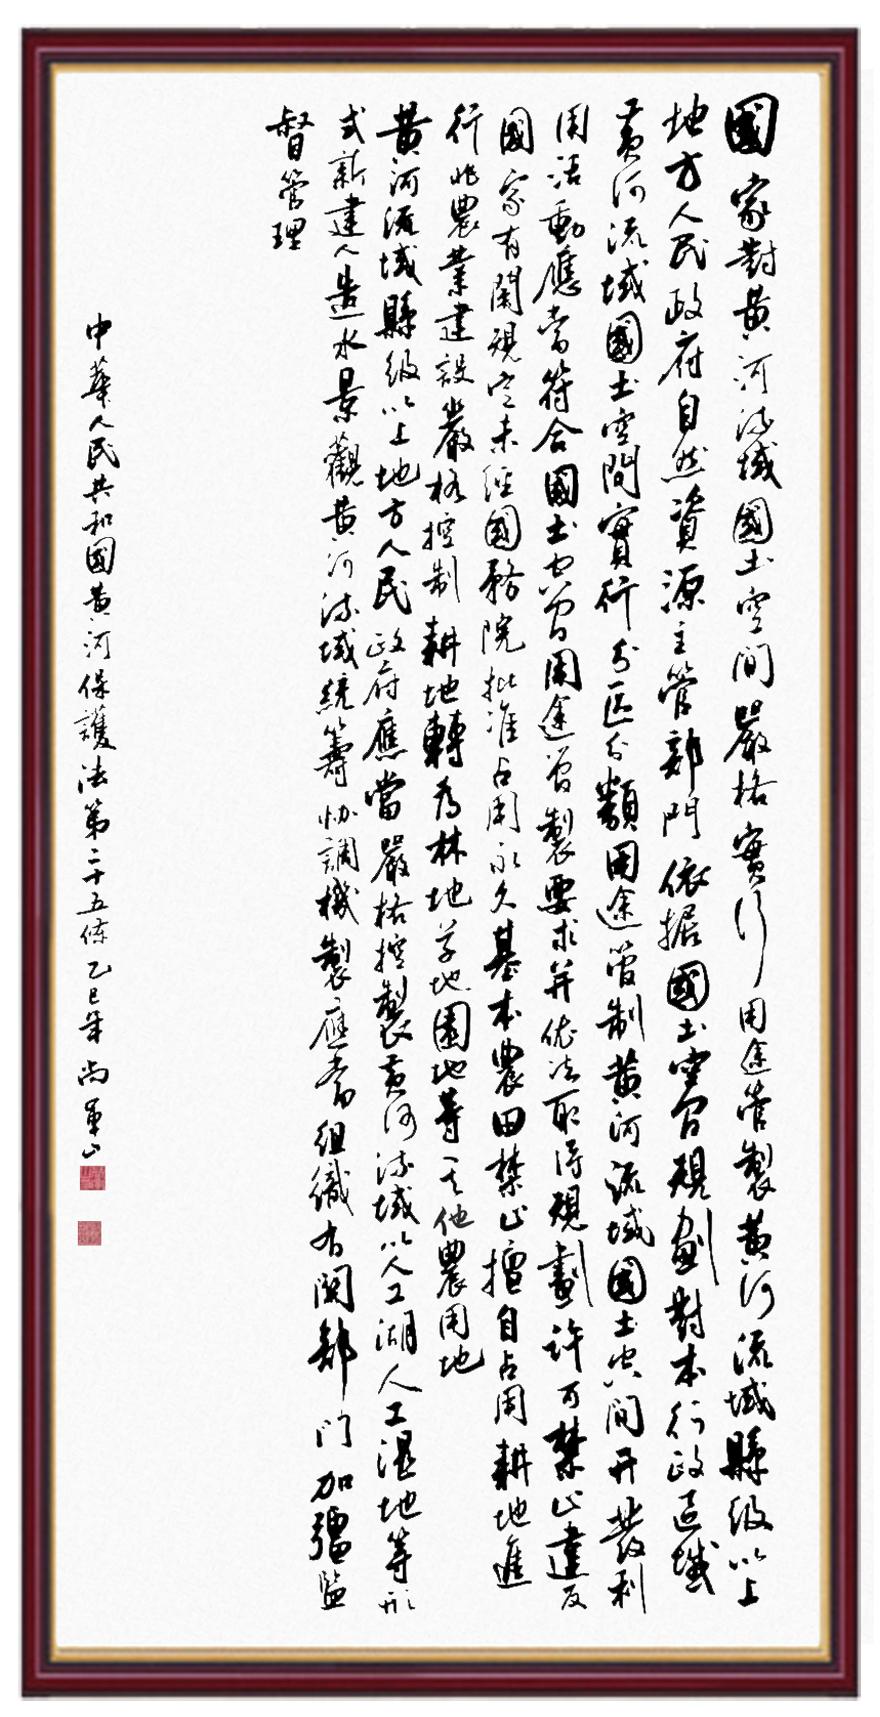 國家對黃河流域國土空間嚴格實行用途管製黃河流域縣級以上
地方人民政府自然資源主管部門依據國土空間規劃對本行政區域
黃河流域國土空間實行分區分類用途管制黃河流域國土空間開發利
用活動應當符合國土空間用途管製要求并依法取得規劃許可禁止違反
國家有關規定未經國務院批准占用永久基本農田禁止擅自占用耕地進
行非農業建設嚴格控制耕地轉為林地草地園地等其他農用地
黃河流域縣級以上地方人民政府應當嚴格控製黃河流域以人工湖人工濕地等形
式新建人造水景觀黃河流域統籌協調機製應當組織有關部門加强監
督管理
中華人民共和國黃河保護法第二十五條乙巳年尚軍山